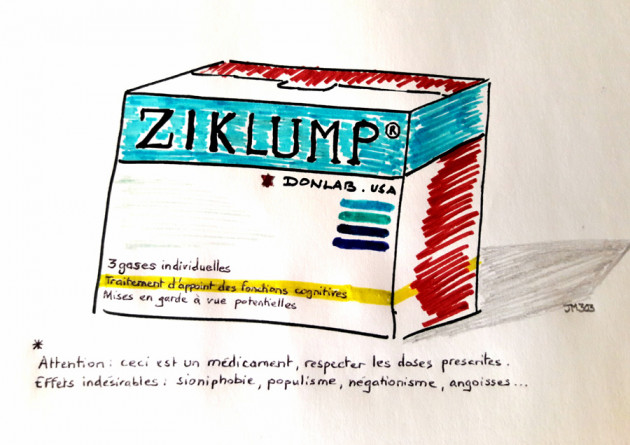 ZIKLUMP®
DONLAB.USA
3 gases individuelles
Traitement d'appoint des fonctions cognitives
Mises en garde à vue potentielles
JM303
*
Attention : ceci est un médicament, respecter les doses prescrites.
Effets indésirables : sioniphobie, populisme, négationisme, angoisses...